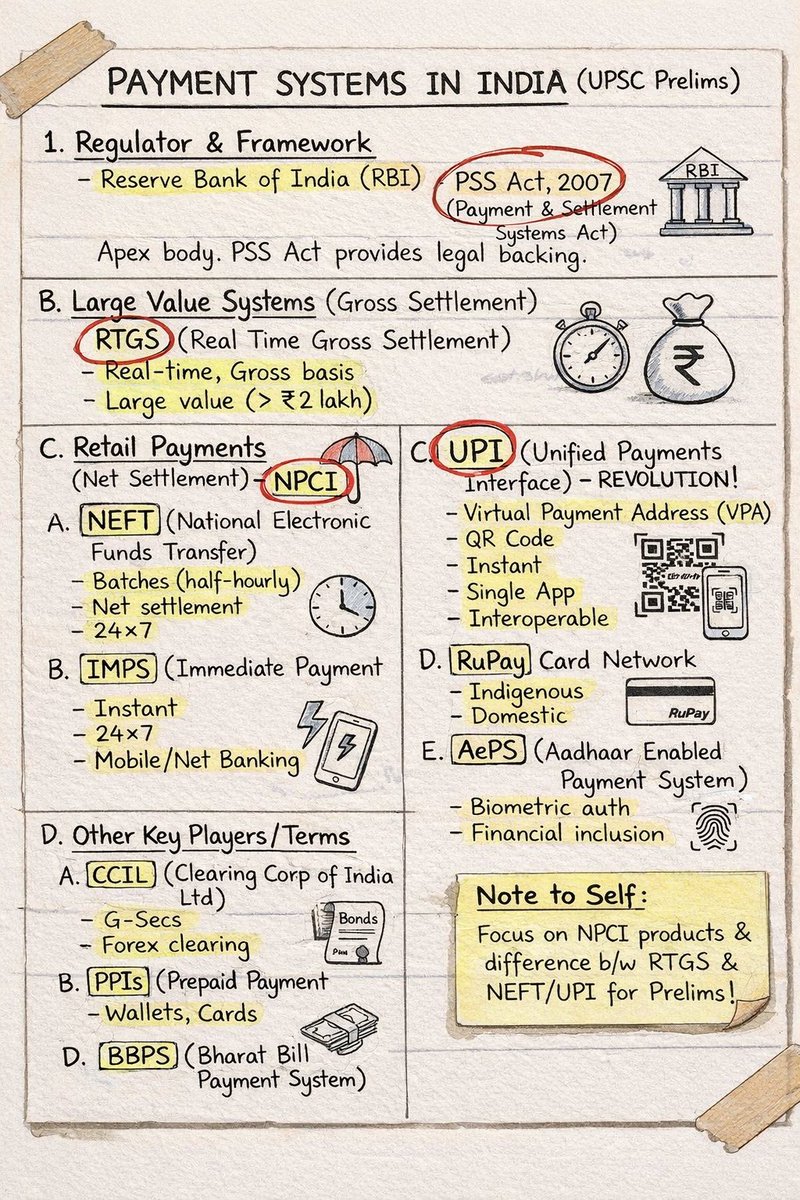 PAYMENT SYSTEMS IN INDIA (UPSC Prelims)
1. Regulator & Framework
- Reserve Bank of India (RBI)
- PSS Act, 2007
(Payment & Settlement
Systems Act)
RBI
Apex body. PSS Act provides legal backing.
B. Large Value Systems (Gross Settlement)
RTGS (Real Time Gross Settlement)
- Real-time, Gross basis
- Large value (> ₹2 lakh)
₹
C. Retail Payments
(Net Settlement) - NPCI
A. NEFT (National Electronic
Funds Transfer)
- Batches (half-hourly)
- Net settlement
- 24×7
B. IMPS (Immediate Payment
- Instant
- 24×7
- Mobile/Net Banking
C. UPI (Unified Payments
Interface) - REVOLUTION!
- Virtual Payment Address (VPA)
- QR Code
- Instant
- Single App
- Interoperable
D. RuPay Card Network
- Indigenous
- Domestic
RuPay
E. AePS (Aadhaar Enabled
Payment System)
- Biometric auth
- Financial inclusion
D. Other Key Players/Terms
A. CCIL (Clearing Corp of India
Ltd)
- G-Secs
- Forex clearing
Bonds
B. PPIs (Prepaid Payment
- Wallets, Cards
D. BBPS (Bharat Bill
Payment System)
Note to Self:
Focus on NPCI products &
difference b/w RTGS &
NEFT/UPI for Prelims!